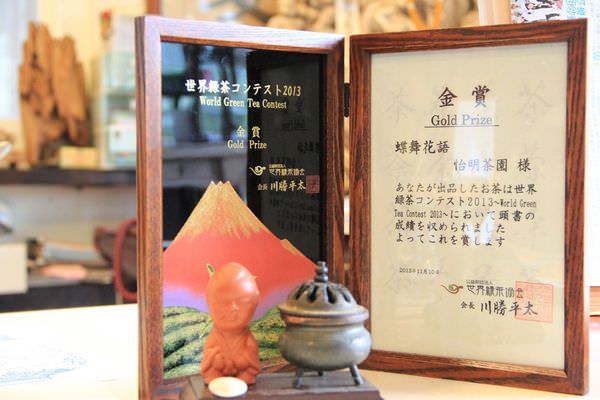 世界緑茶コンテスト2013
World Green Tea Contest
金賞
Gold Prize
公益財団法人
世界緑茶協会
会長 川勝平太
金賞
Gold Prize
蝶舞花語
怡明茶園 様
あなたが出品したお茶は世界
緑茶コンテスト2013~World Green
Tea Contest 2013~において頭書の
成績を収められました
よってこれを賞します
2013年11月10日
公益財団法人
世界緑茶協会
会長 川勝平太